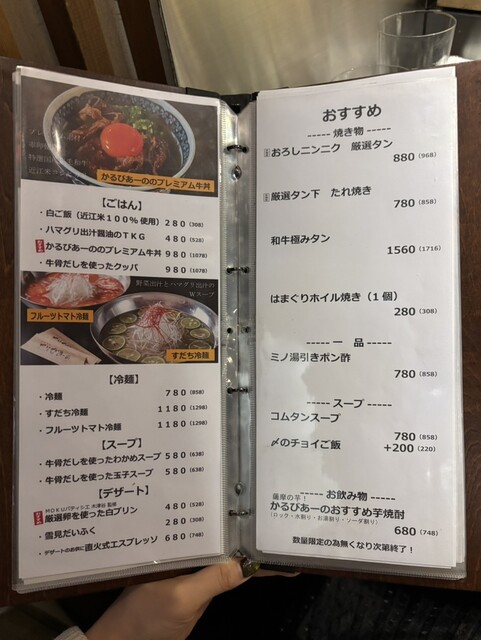 かるびあーののプレミアム牛丼
【ごはん】
・白ご飯（近江米100%使用）280(308)
・ハマグリ出汁醤油のTKG 480(528)
・かるびあーののプレミアム牛丼 980(1078)
・牛骨だしを使ったクッパ 980(1078)
野菜出汁とハマグリ出汁の
Wスープ
フルーツトマト冷麺
すだち冷麺
【冷麺】
・冷麺 780(858)
・すだち冷麺 1180(1298)
・フルーツトマト冷麺 1180(1298)
【スープ】
・牛骨だしを使ったわかめスープ 580(638)
・牛骨だしを使った玉子スープ 580(638)
【デザート】
・厳選卵を使った白プリン 480(528)
・雪見だいふく 280(308)
・デザートのお供に直火式エスプレッソ 680(748)
おすすめ
----- 焼き物 -----
おろしニンニク 厳選タン
880(968)
厳選タン下 たれ焼き
780(858)
和牛極みタン
1560(1716)
はまぐりホイル焼き（1個）
280(308)
----- 一品 -----
ミノ湯引きポン酢
780(858)
----- スープ -----
コムタンスープ
780(858)
〆のチョイご飯 +200(220)
----- お飲み物 -----
薩摩の芋！
かるびあーののおすすめ芋焼酎
(ロック・水割り・お湯割り・ソーダ割り)
680(748)
数量限定の為無くなり次第終了！